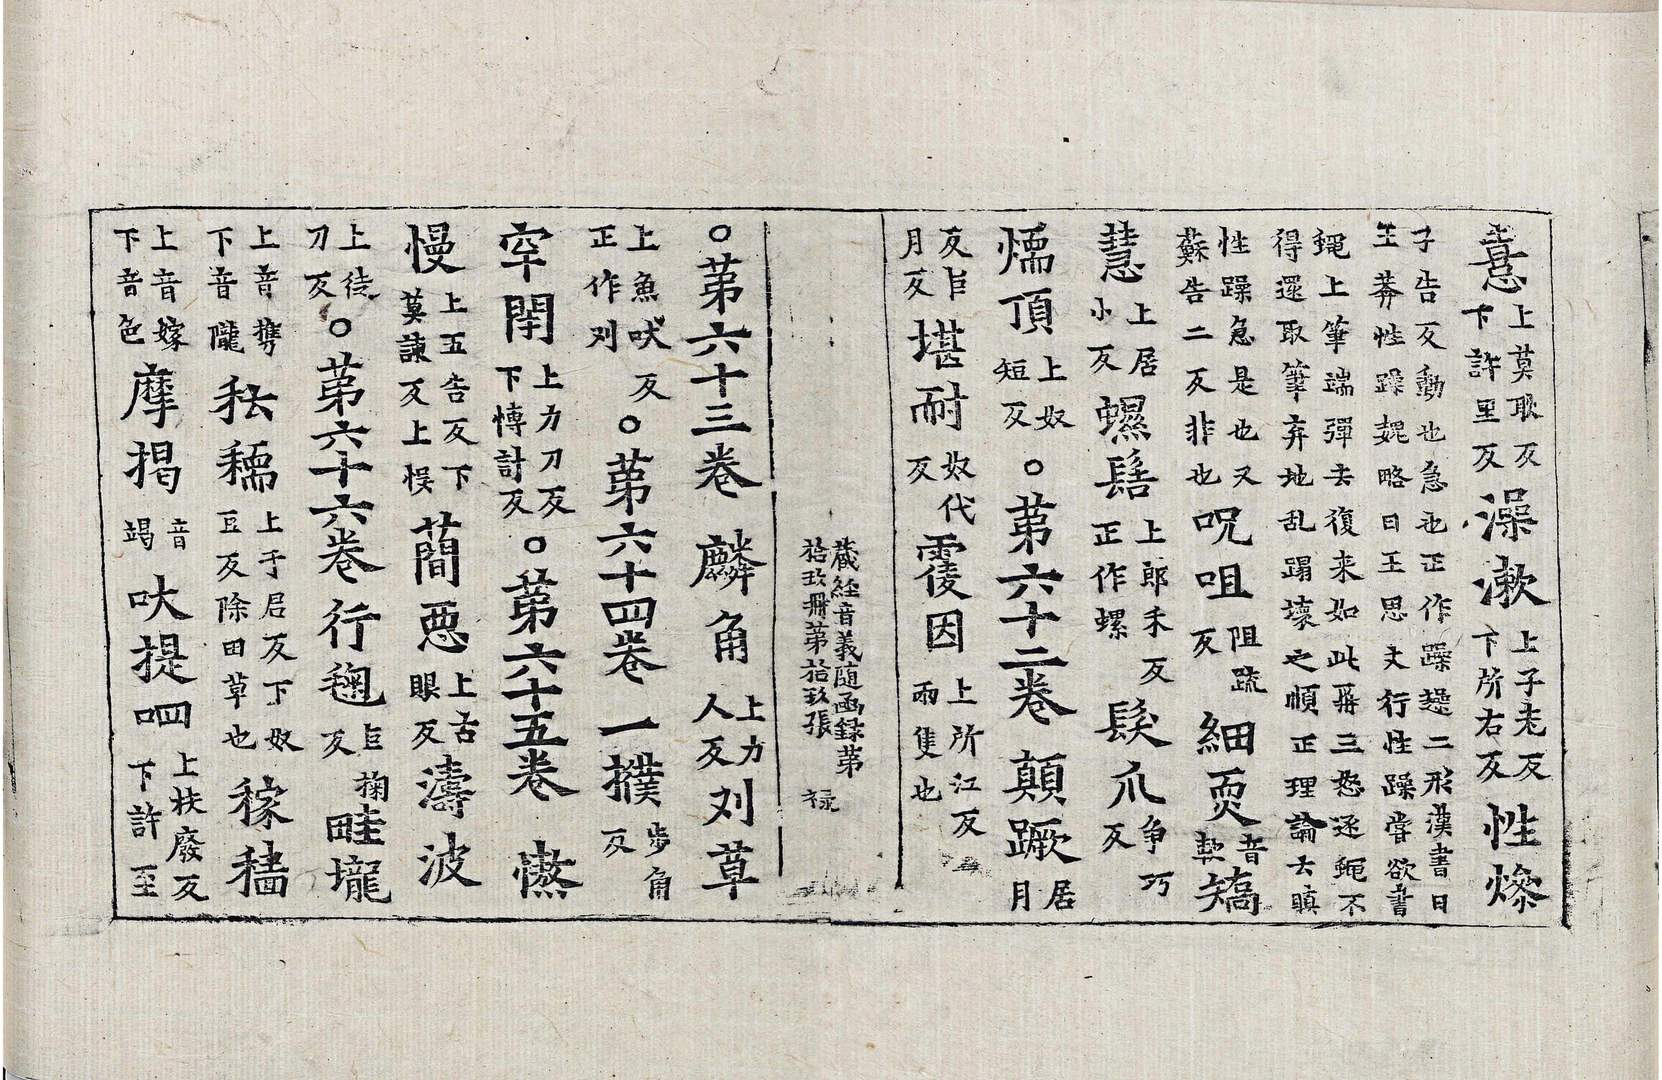 憙上莫耿反下許里反澡漱上子老反下所右反性燥
子告反動也急也正作躁趮二形漢書曰王莽性躁魏略曰王思大行性躁嘗欲書
蝿上筆端彈去復来如此再三怒逐蝿不得還取筆弃地乱蹋壞之順正理論云瞋
性躁急是也又蘇告二反非也呪咀阻疏反細耎音軟矯
慧上居小反螺髻上郎禾反正作螺髮爪争巧反
煗頂上奴短反○第六十二卷顛蹶居月
反巨月反堪耐奴代反䨥因上所江反兩隻也
蔵經音義随函録第拾玖冊第拾玖張 禄
○第六十三卷麟角上力人反刈草
上魚吠反正作刈○第六十四卷一撲步角反
牢閇上力刀反下愽計反○第六十五卷憿
慢上五告反下莫諫反上悮蕳悪上古眼反濤波
上徒刀反○第六十六卷行麹巨掬反畦壠
上音攜下音隴耘穤上于君反下奴豆反除田草也稼穡
上音嫁下音色摩揭音竭吠提呬上扶廢反下許至